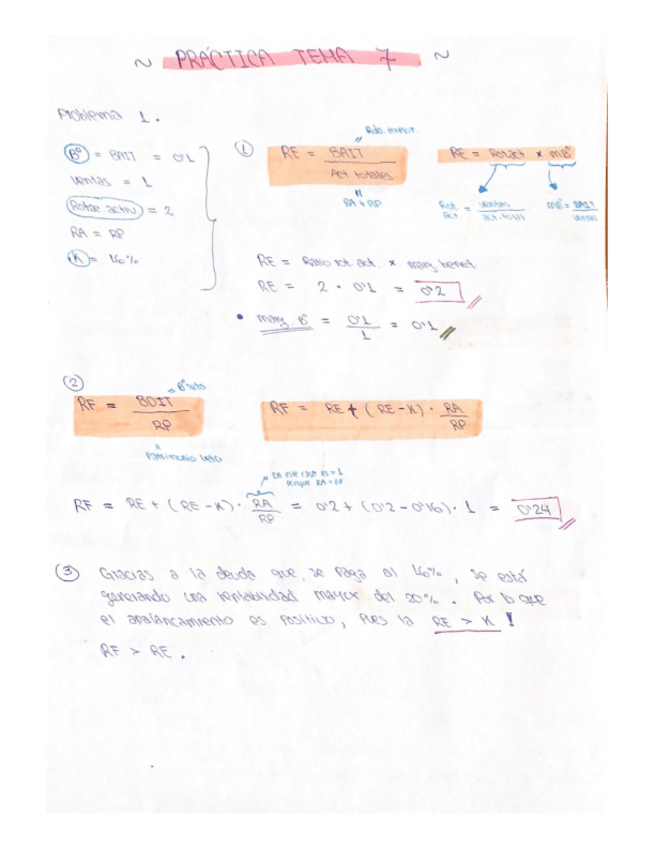 ~ PRÁCTICA TEMA 7 ~
Problema 1.
Bº = BAIT = 0'1
Ventas = 1
Rotac activ = 2
RA = RP
K = 16%
① RE = BAIT / Act totales
Rdo. explot.
RA + RP
RE = Rotact x MBº
Rot act = ventas / act. total
MBº = BAIT / ventas
RE = Ratio rot. act. x marg. benef.
RE = 2 · 0'1 = 0'2
• marg. Bº = 0'1 / 1 = 0'1
②
RF = BDIT / RP
= Bº neto
Patrimonio neto
RF = RE + (RE - K) · RA / RP
en este caso es = 1
porque RA = RP
RF = RE + (RE - K) · RA / RP = 0'2 + (0'2 - 0'16) · 1 = 0'24
③ Gracias a la deuda que se paga al 16%, se está
generando una rentabilidad mayor del 20%. Por lo que
el apalancamiento es positivo, pues la RE > K !
RF > RE.